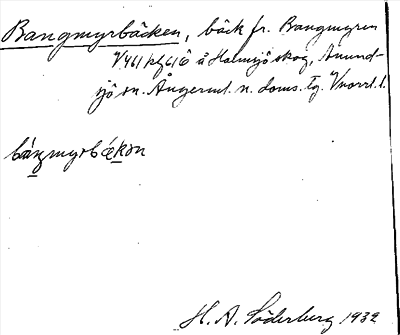 Bangmyrbäcken, bäck fr. Bangmyren
å Holmsjö skog, Anund-
sjö sn. Ångerml. n. doms. tg. Vnorrl. l.
bángmyrbækən
H. A. Söderberg 1932